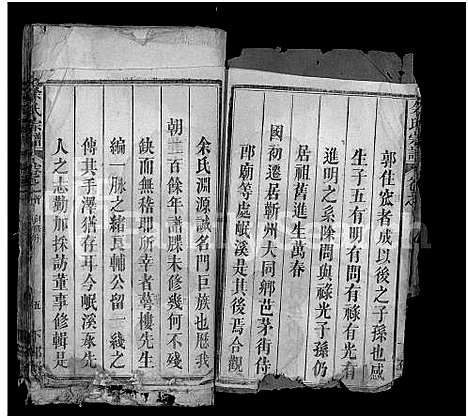 郭住宏者成以後之子孫也成
生子五有明有問有祿有光有
進明之系除問與祿光子孫仍
居祖舊進生萬春
國初遷居蘄州大同鄉芭茅街待
郎廟等處岷溪是其後焉合觀
余氏淵源誠名門巨族也厯我
朝二百餘年譜牒未修幾何不殘
缺而無稽即所幸萼樓先生
編一脉之緒良輔公留一綫之
傳其手澤猶存耳今岷溪承先
人之志勤加採訪董事修輯是
余氏宗譜
五
FamilySearch